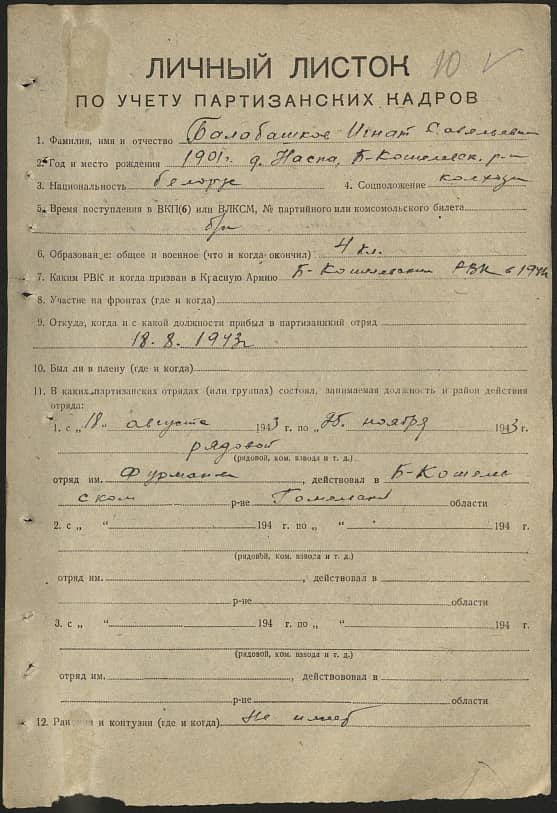 10 V
ЛИЧНЫЙ ЛИСТОК
ПО УЧЕТУ ПАРТИЗАНСКИХ КАДРОВ
1. Фамилия, имя и отчество Балабашков Игнат Савельевич
2. Год и место рождения 1901г. д. Наспа, Б-Кошелевск. р-н
3. Национальность белорус 4. Соцположение колхозн
5. Время поступления в ВКП(б) или ВЛКСМ, № партийного или комсомольского билета
б/п
6. Образование: общее и военное (что и когда окончил) 4 кл.
7. Каким РВК и когда призван в Красную Армию Б-Кошелевским РВК в
8. Участие на фронтах (где и когда)
9. Откуда, когда и с какой должности прибыл в партизанский отряд
18. 8. 1943г
10. Был ли в плену (где и когда)
11. В каких партизанских отрядах (или группах) состоял, занимаемая должность и район действия
отряда:
1. с „18" августа 1943 г. по „25. ноября 1943 г.
рядовой
(рядовой, ком. взвода и т. д.)
отряд им. Фурманова, действовал в Б-Кошелев
ском р-не Гомельской области
2. с „ " 194 г. по „ " 194 г.
(рядовой, ком. взвода и т. д.)
отряд им. , действовал в
р-не области
3. с „ " 194 г. по „ " 194 г.
(рядовой, ком. взвода и т. д.)
отряд им. , действововал в
р-не области
12. Ранения и контузии (где и когда) Не имеет